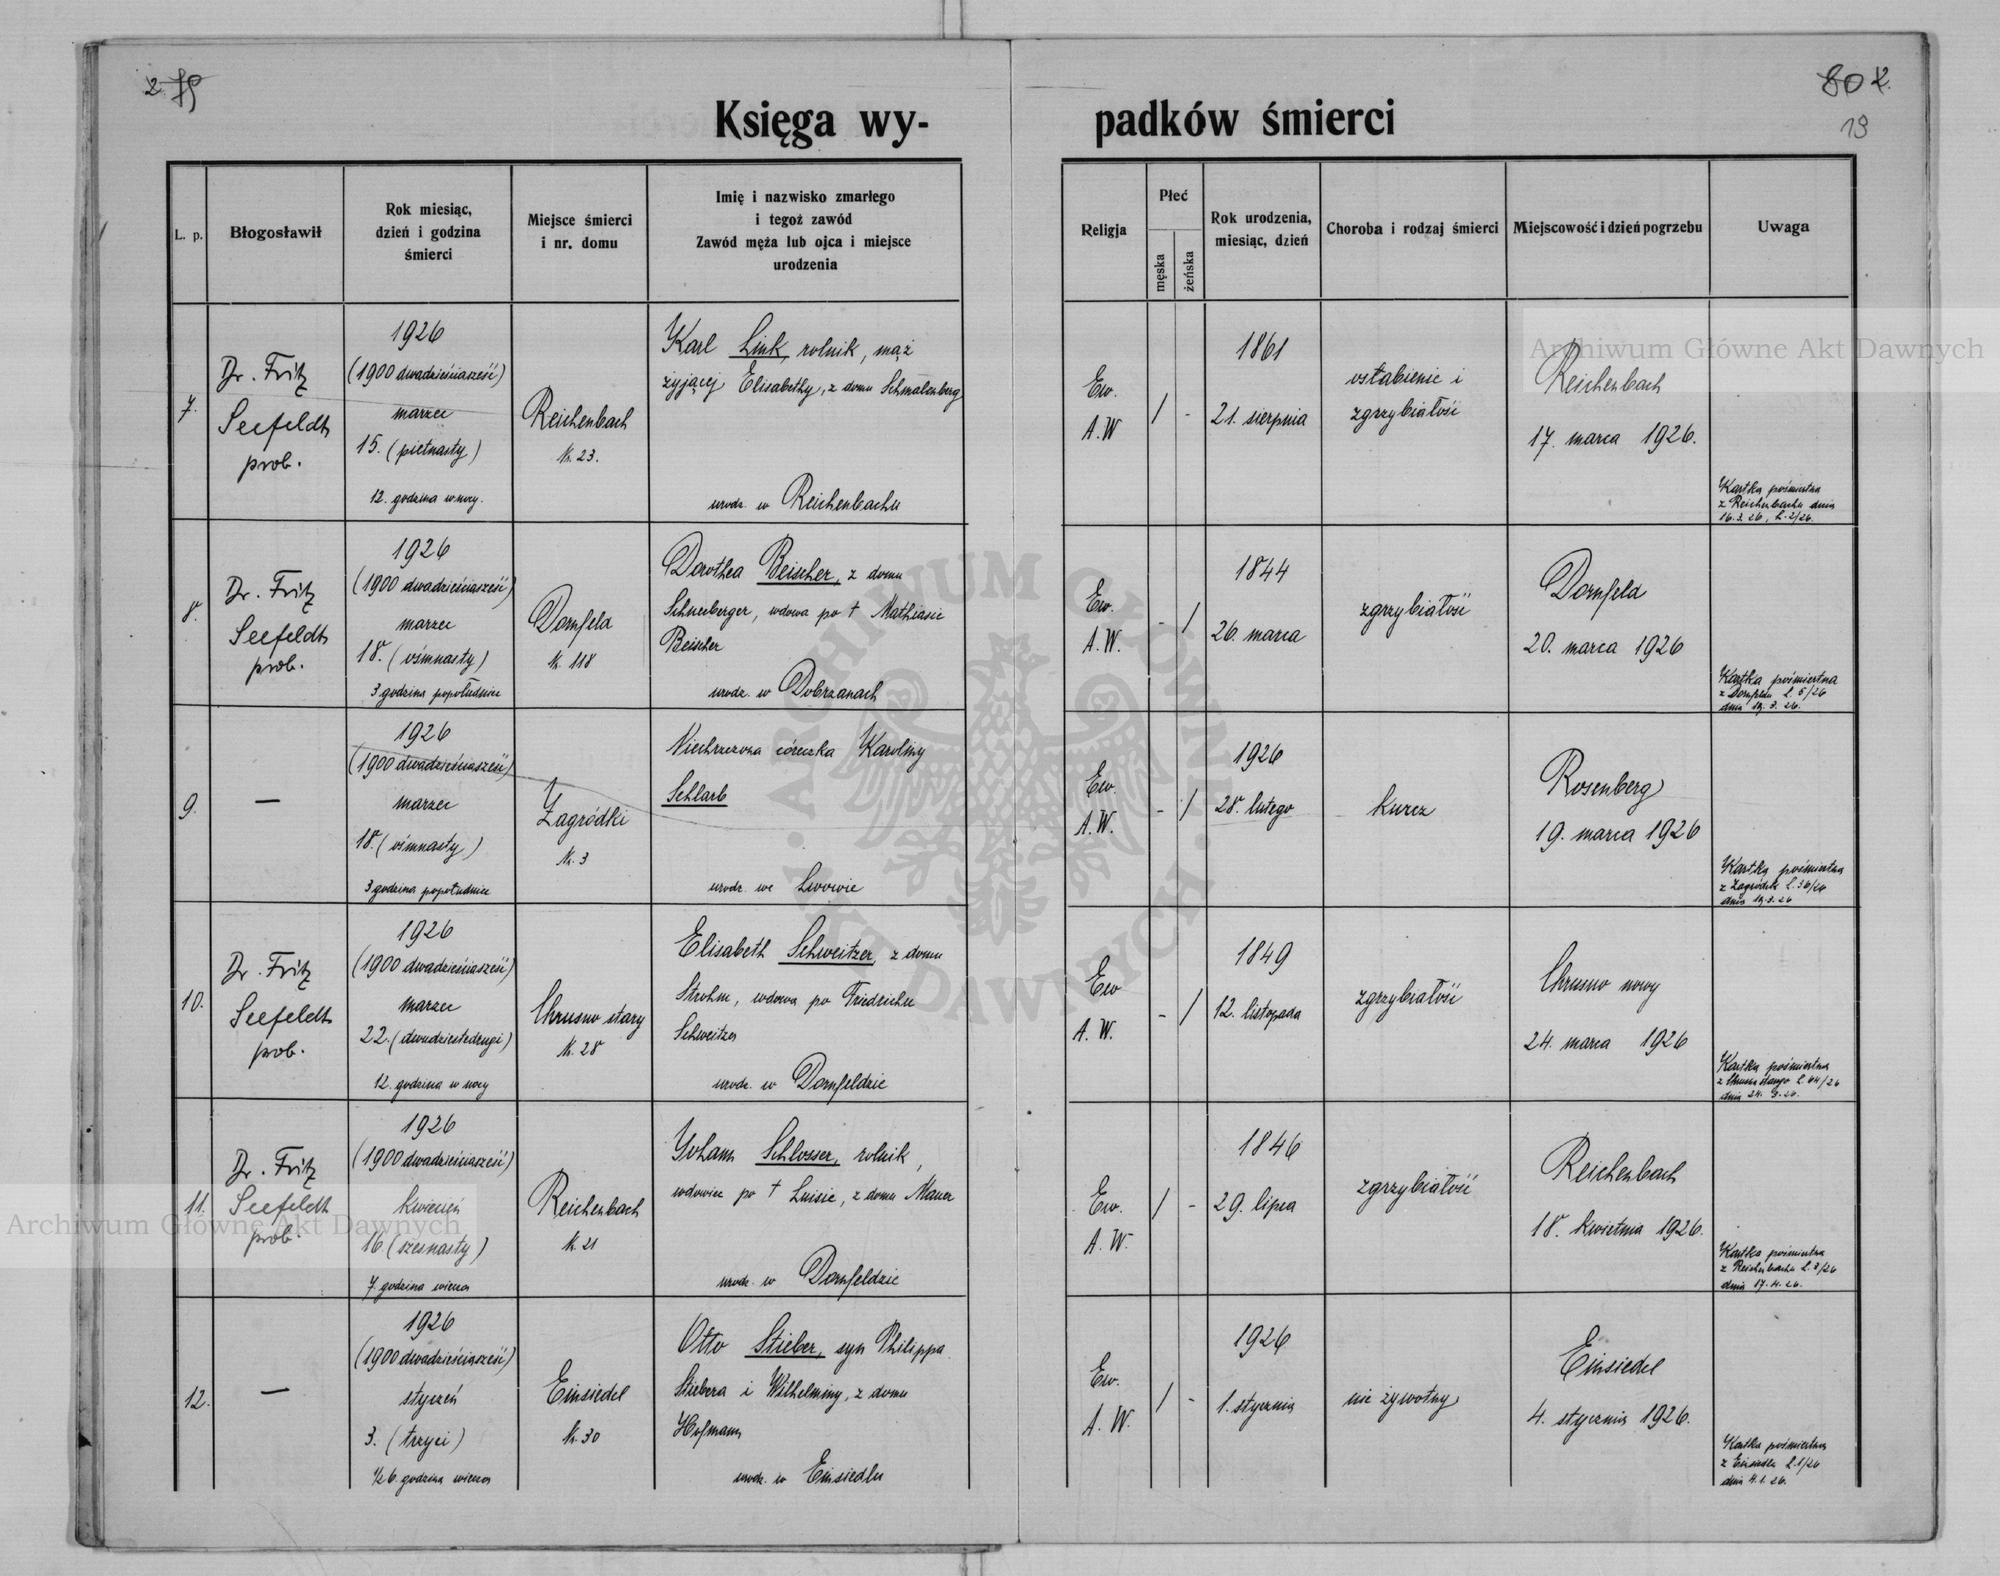 2. 79
80 2.
19
Księga wy-
padków śmierci
L. p.
Błogosławił
Rok miesiąc,
dzień i godzina
śmierci
Miejsce śmierci
i nr. domu
Imię i nazwisko zmarłego
i tegoż zawód
Zawód męża lub ojca i miejsce
urodzenia
Religja
Płeć
męska
żeńska
Rok urodzenia,
miesiąc, dzień
Choroba i rodzaj śmierci
Miejscowość i dzień pogrzebu
Uwaga
7.
Dr. Fritz
Seefeldt
prob.
1926
(1900 dwadzieściasześć)
marzec
15. (piętnasty)
12. godzina w nocy.
Reichenbach
Nr. 23.
Karl Link, rolnik, mąż
żyjącej Elisabethy, z domu Schmalenberg
urodz. w Reichenbachu
Ew.
A.W
/ -
1861
21. sierpnia
osłabienie i
zgrzybiałość
Reichenbach
17. marca 1926.
Kartka pośmiertna
z Reichenbachu dnia
16.3.26, L. 2/26.
8.
Dr. Fritz
Seefeldt
prob.
1926
(1900 dwadzieściasześć)
marzec
18. (ośmnasty)
3 godzina popołudniu
Dornfeld
Nr. 118
Dorothea Beischer, z domu
Schneeberger, wdowa po † Mathiasie
Beischer
urodz. w Dobrzanach
Ew.
A.W.
- /
1844
26. marca
zgrzybiałość
Dornfeld
20. marca 1926
Kartka pośmiertna
z Dornfeldu L. 5/26
dnia 19.3.26.
9.
—
1926
(1900 dwadzieściasześć)
marzec
18. (ośmnasty)
3 godzina popołudniu
Zagródki
Nr. 3
Niechrzczona córeczka Karoliny
Schlarb
urodz. we Lwowie
Ew
A.W.
- /
1926
28. lutego
kurcz
Rosenberg
19. marca 1926
Kartka pośmiertna
z Zagródek L. 36/26
dnia 19.3.26
10.
Dr. Fritz
Seefeldt
prob.
1926
(1900 dwadzieściasześć)
marzec
22. (dwudziestydrugi)
12. godzina w nocy
Chrusno stary
Nr. 28
Elisabeth Schweitzer, z domu
Strohm, wdowa po Friedrichu
Schweitzer
urodz. w Dornfeldzie
Ew
A.W.
- /
1849
12. listopada
zgrzybiałość
Chrusno nowy
24. marca 1926
Kartka pośmiertna
z Chrusna starego L. 44/26
dnia 24. 3. 26.
11.
Dr. Fritz
Seefeldt
prob.
1926
(1900 dwadzieściasześć)
kwiecień
16 (szesnasty)
7. godzina wieczor
Reichenbach
Nr. 21
Johann Schlosser, rolnik,
wdowiec po † Luisie, z domu Mauer
urodz. w Dornfeldzie
Ew.
A.W.
/ -
1846
29. lipca
zgrzybiałość
Reichenbach
18. kwietnia 1926.
Kartka pośmiertna
z Reichenbachu L. 3/26
dnia 17.4.26.
12.
—
1926
(1900 dwadzieściasześć)
styczeń
3. (trzeci)
½6. godzina wieczor
Einsiedel
Nr. 30
Otto Stieber, syn Philippa
Stiebera i Wilhelminy, z domu
Hofmann
urodz. w Einsiedlu
Ew.
A.W.
/ -
1926
1. stycznia
nie żywotny
Einsiedel
4. stycznia 1926.
Kartka pośmiertna
z Einsiedla L. 1/26
dnia 4.1.26.
Archiwum Główne Akt Dawnych
Archiwum Główne Akt Dawnych
ARCHIWUM GŁÓWNE
AKT DAWNYCH